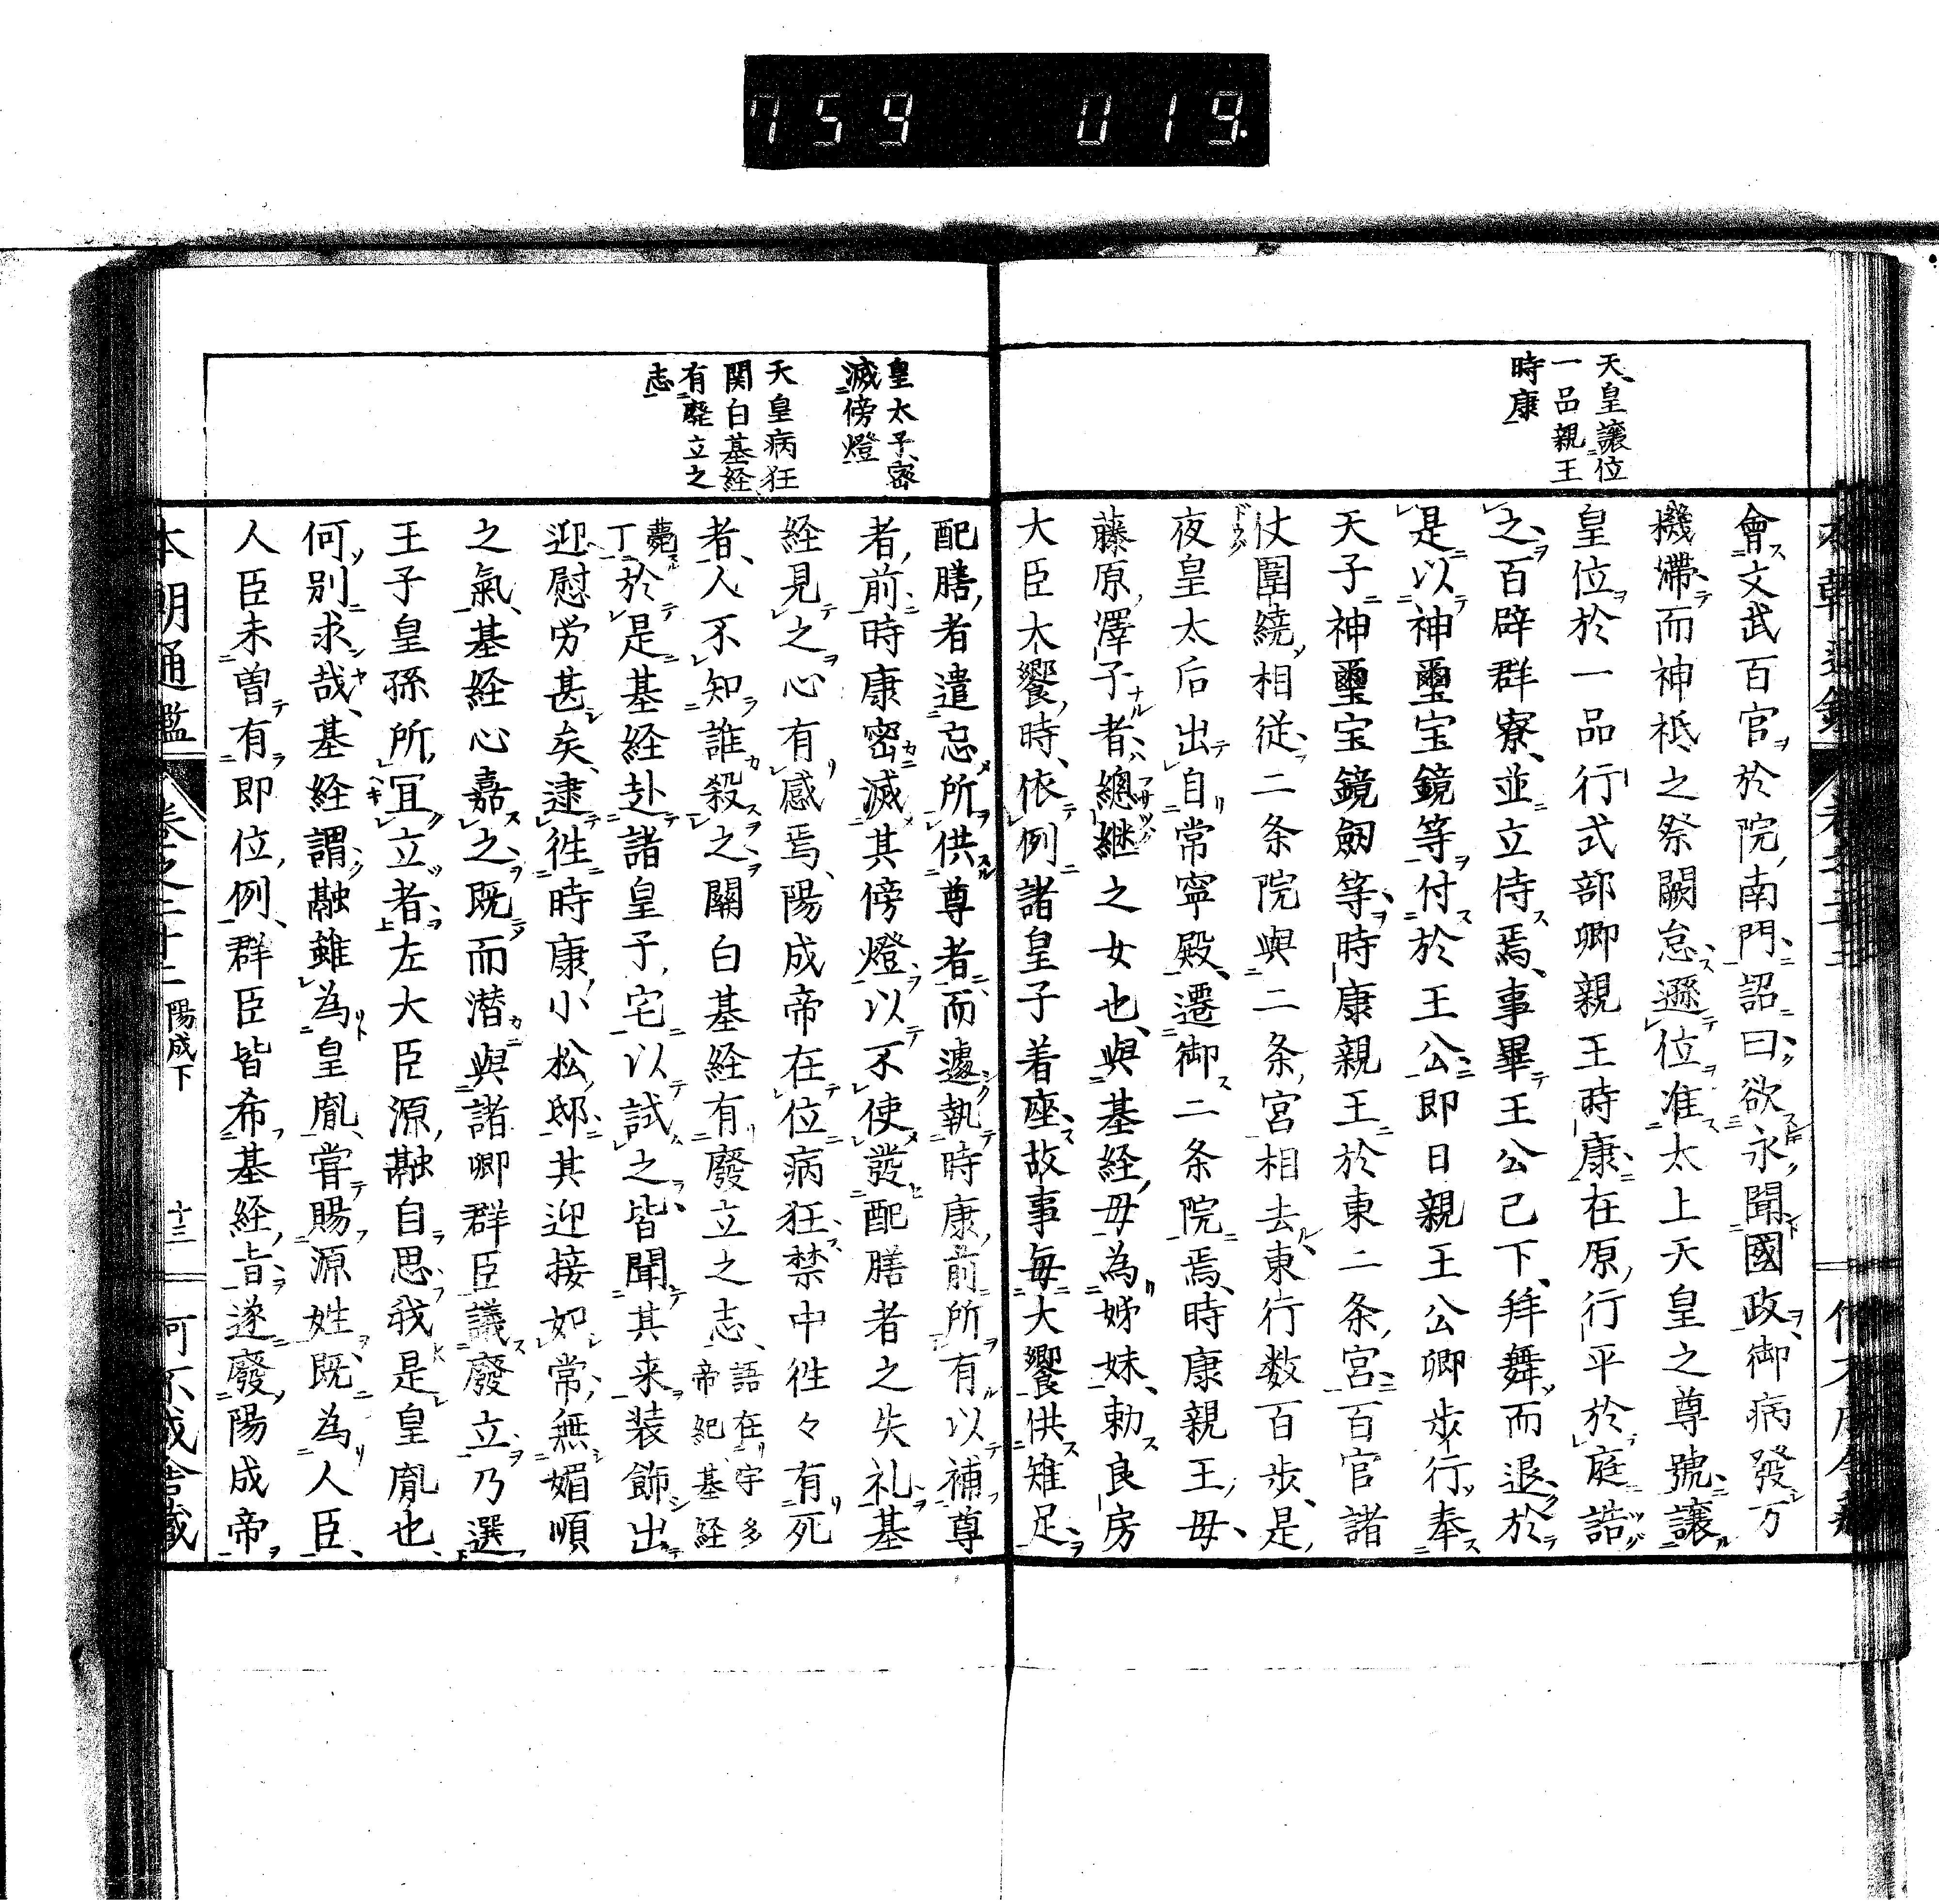 759 019
天皇譲位
一品親王
時康
會文武百官於院南門詔曰欲永聞國政御病發万
機滯而神祇之祭闕怠遜位准太上天皇之尊號讓
皇位於一品行式部卿親王時康在原行平於庭誥
之百辟群寮並立侍焉事畢王公已下拜舞而退於
是以神璽宝鏡等付於王公即日親王公卿歩行奉
天子神璽宝鏡劔等時康親王於東二条宮百官諸
仗圍繞相従二条院與二条宮相去東行数百歩是
夜皇太后出自常寧殿遷御二条院焉時康親王母
藤原澤子者總継之女也與基経母為姊妹勅良房
大臣大饗時依例諸皇子着座故事毎大饗供雉足
皇太子密
滅傍燈
天皇病狂
関白基経
有廢立之
志
配膳者遣忘所供尊者而遽執時康前所有以補尊
者前時康密滅其傍燈以不使發配膳者之失礼基
経見之心有感焉陽成帝在位病狂禁中徃々有死
者人不知誰殺之關白基経有廢立之志語在宇多
帝紀基経
薨
丁於是基経赴諸皇子宅以試之皆聞其来装飾出
迎慰労甚矣逮徃時康小松邸其迎接如常無媚順
之氣基経心嘉之既而潜與諸卿群臣議廢立乃選
王子皇孫所宜立者左大臣源融自思我是皇胤也
何別求哉基経謂融雖為皇胤嘗賜源姓既為人臣
人臣未曽有即位例群臣皆希基経旨遂廢陽成帝
本朝通鑑 卷之二十二 陽成下 十三